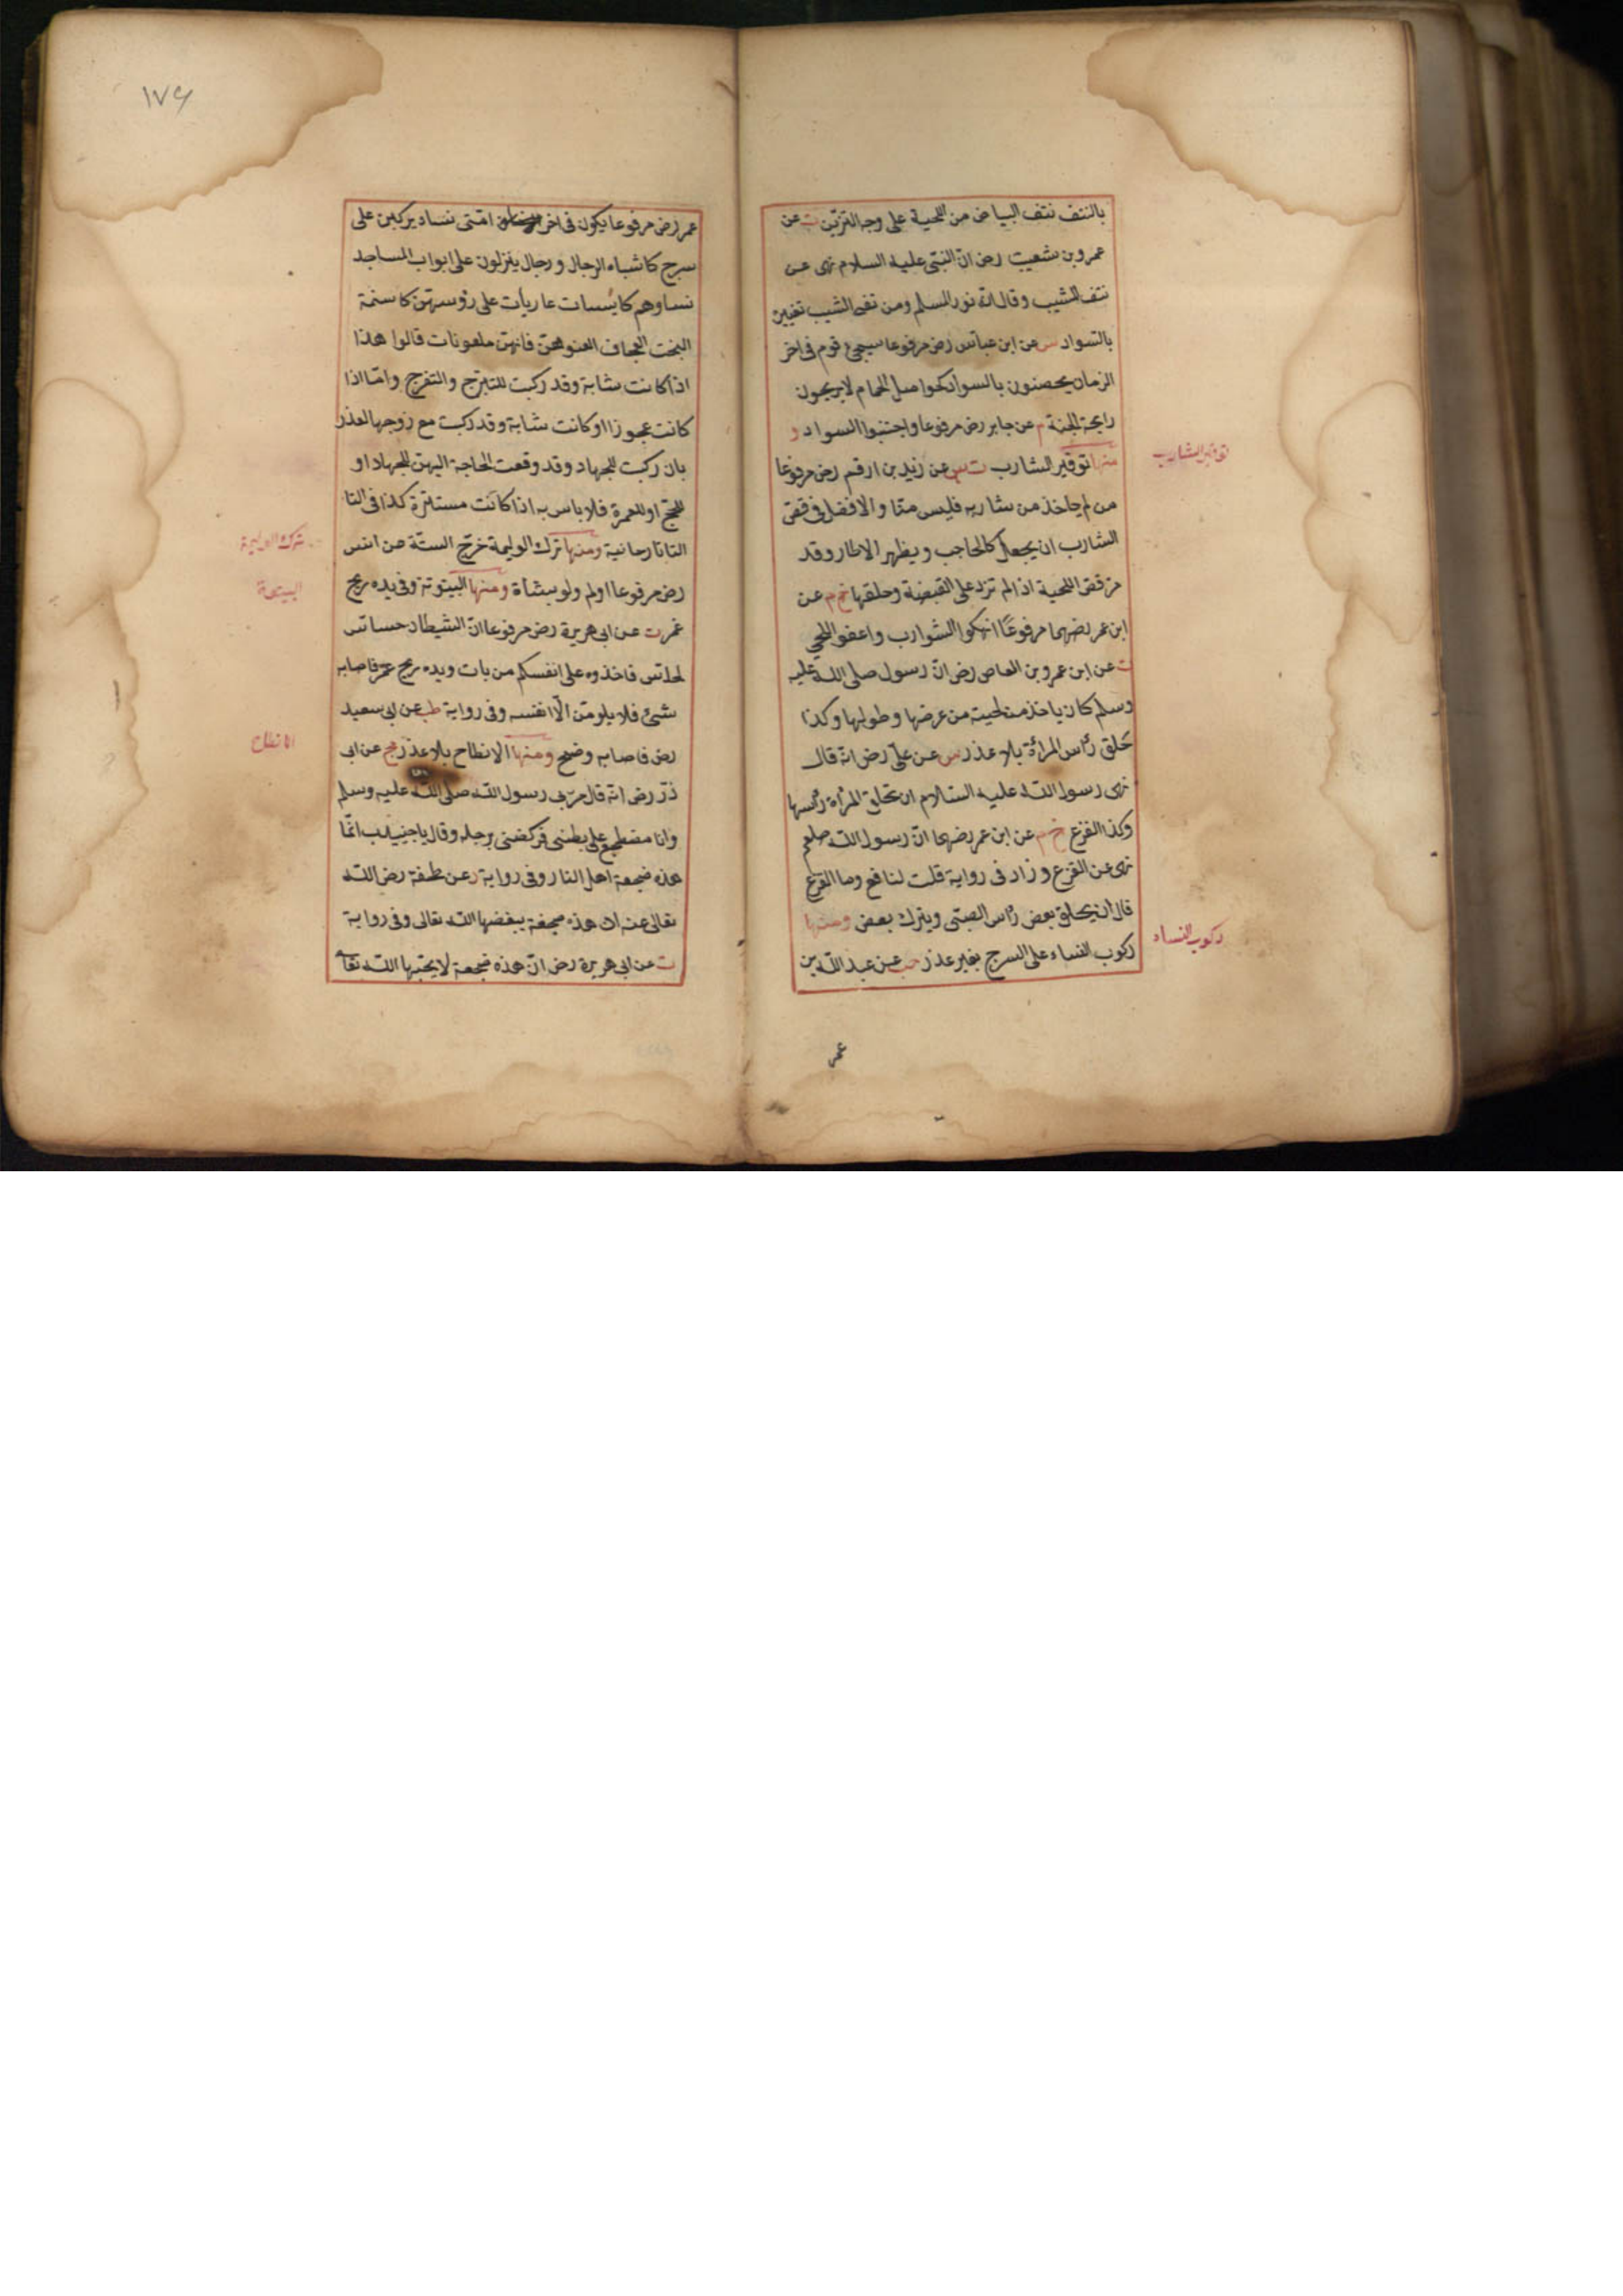 بالنتف نتف البياض من اللحية على وجه التزين ت عن
عمرو بن شعيب رض ان النبى عليه السلام نهى عن
نتف الشيب وقال انه نور المسلم ومن تغير الشيب تغييره
بالسواد س عن ابن عباس رض مرفوعا سيجئ قوم فى اخر
الزمان يخضبون بالسواد كحواصل الحمام لا يريحون
رايحة الجنة م عن جابر رض مرفوعا واجتنبوا السواد و
منها توفير الشارب ت س عن زيد بن ارقم رض مرفوعا
من لم ياخذ من شاربه فليس منا والافضل فى قص
الشارب ان يجعل كالحاجب ويظهر الاطار وقد
مر قص اللحية اذا لم تزد على القبضة وحلقها خ م عن
ابن عمر رضهما مرفوعا انهكوا الشوارب واعفوا اللحى
ت عن ابن عمرو بن العاص رض ان رسول صلى الله عليه
وسلم كان ياخذ من لحيته من عرضها وطولها وكذا
حلق رأس المرأة بلا عذر س عن على رض انه قال
نهى رسول الله عليه السلام ان تحلق المرأة رأسها
وكذا القزع خ م عن ابن عمر رضهما ان رسول الله صلعم
نهى عن القزع وزاد فى رواية قلت لنافع وما القزع
قال ان يحلق بعض رأس الصبى ويترك بعض ومنها
ركوب النساء على السرج بغير عذر حب عن عبد الله بن
عمر
توفير الشارب
ركوب النساء
١٧٤
عمر رض مرفوعا يكون فى اخر امتى نساء يركبن على
سرج كاشباه الرجال ورجال ينزلون على ابواب المساجد
نساوهم كاسيات عاريات على رؤسهن كاسنمة
البخت العجاف العنوهن فانهن ملعونات قالوا هذا
اذا كانت شابة وقد ركبت للتبرج والتفرج واما اذا
كانت عجوزا او كانت شابة وقد ركبت مع زوجها لعذر
بان ركبت للجهاد وقد وقعت الحاجة اليهن للجهاد او
للحج او للعمرة فلا باس به اذا كانت مستترة كذا فى التا
التاتارخانية ومنها ترك الوليمة خرج الستة عن انس
رض مرفوعا اولم ولو بشاة ومنها البيتوتة وفى يده ريح
غمر ت عن ابى هريرة رض مرفوعا ان الشيطان حساس
لحاس فاحذروه على انفسكم من بات وبيده ريح غمر فاصابه
شئ فلا يلومن الا نفسه وفى رواية طب عن ابى سعيد
رض فاصابه وضح ومنها الانبطاح بلا عذر مج عن ابى
ذر رض انه قال مر بى رسول الله صلى الله عليه وسلم
وانا مضطجع على بطنى فركضنى برجله وقال يا جنيدب انما
هذه ضجعة اهل النار وفى رواية عن طخفة رض الله
تعالى عنه ان هذه ضجعة يبغضها الله تعالى وفى رواية
ت عن ابى هريرة رض ان هذه ضجعة لا يحبها الله تعا
ترك الوليمة